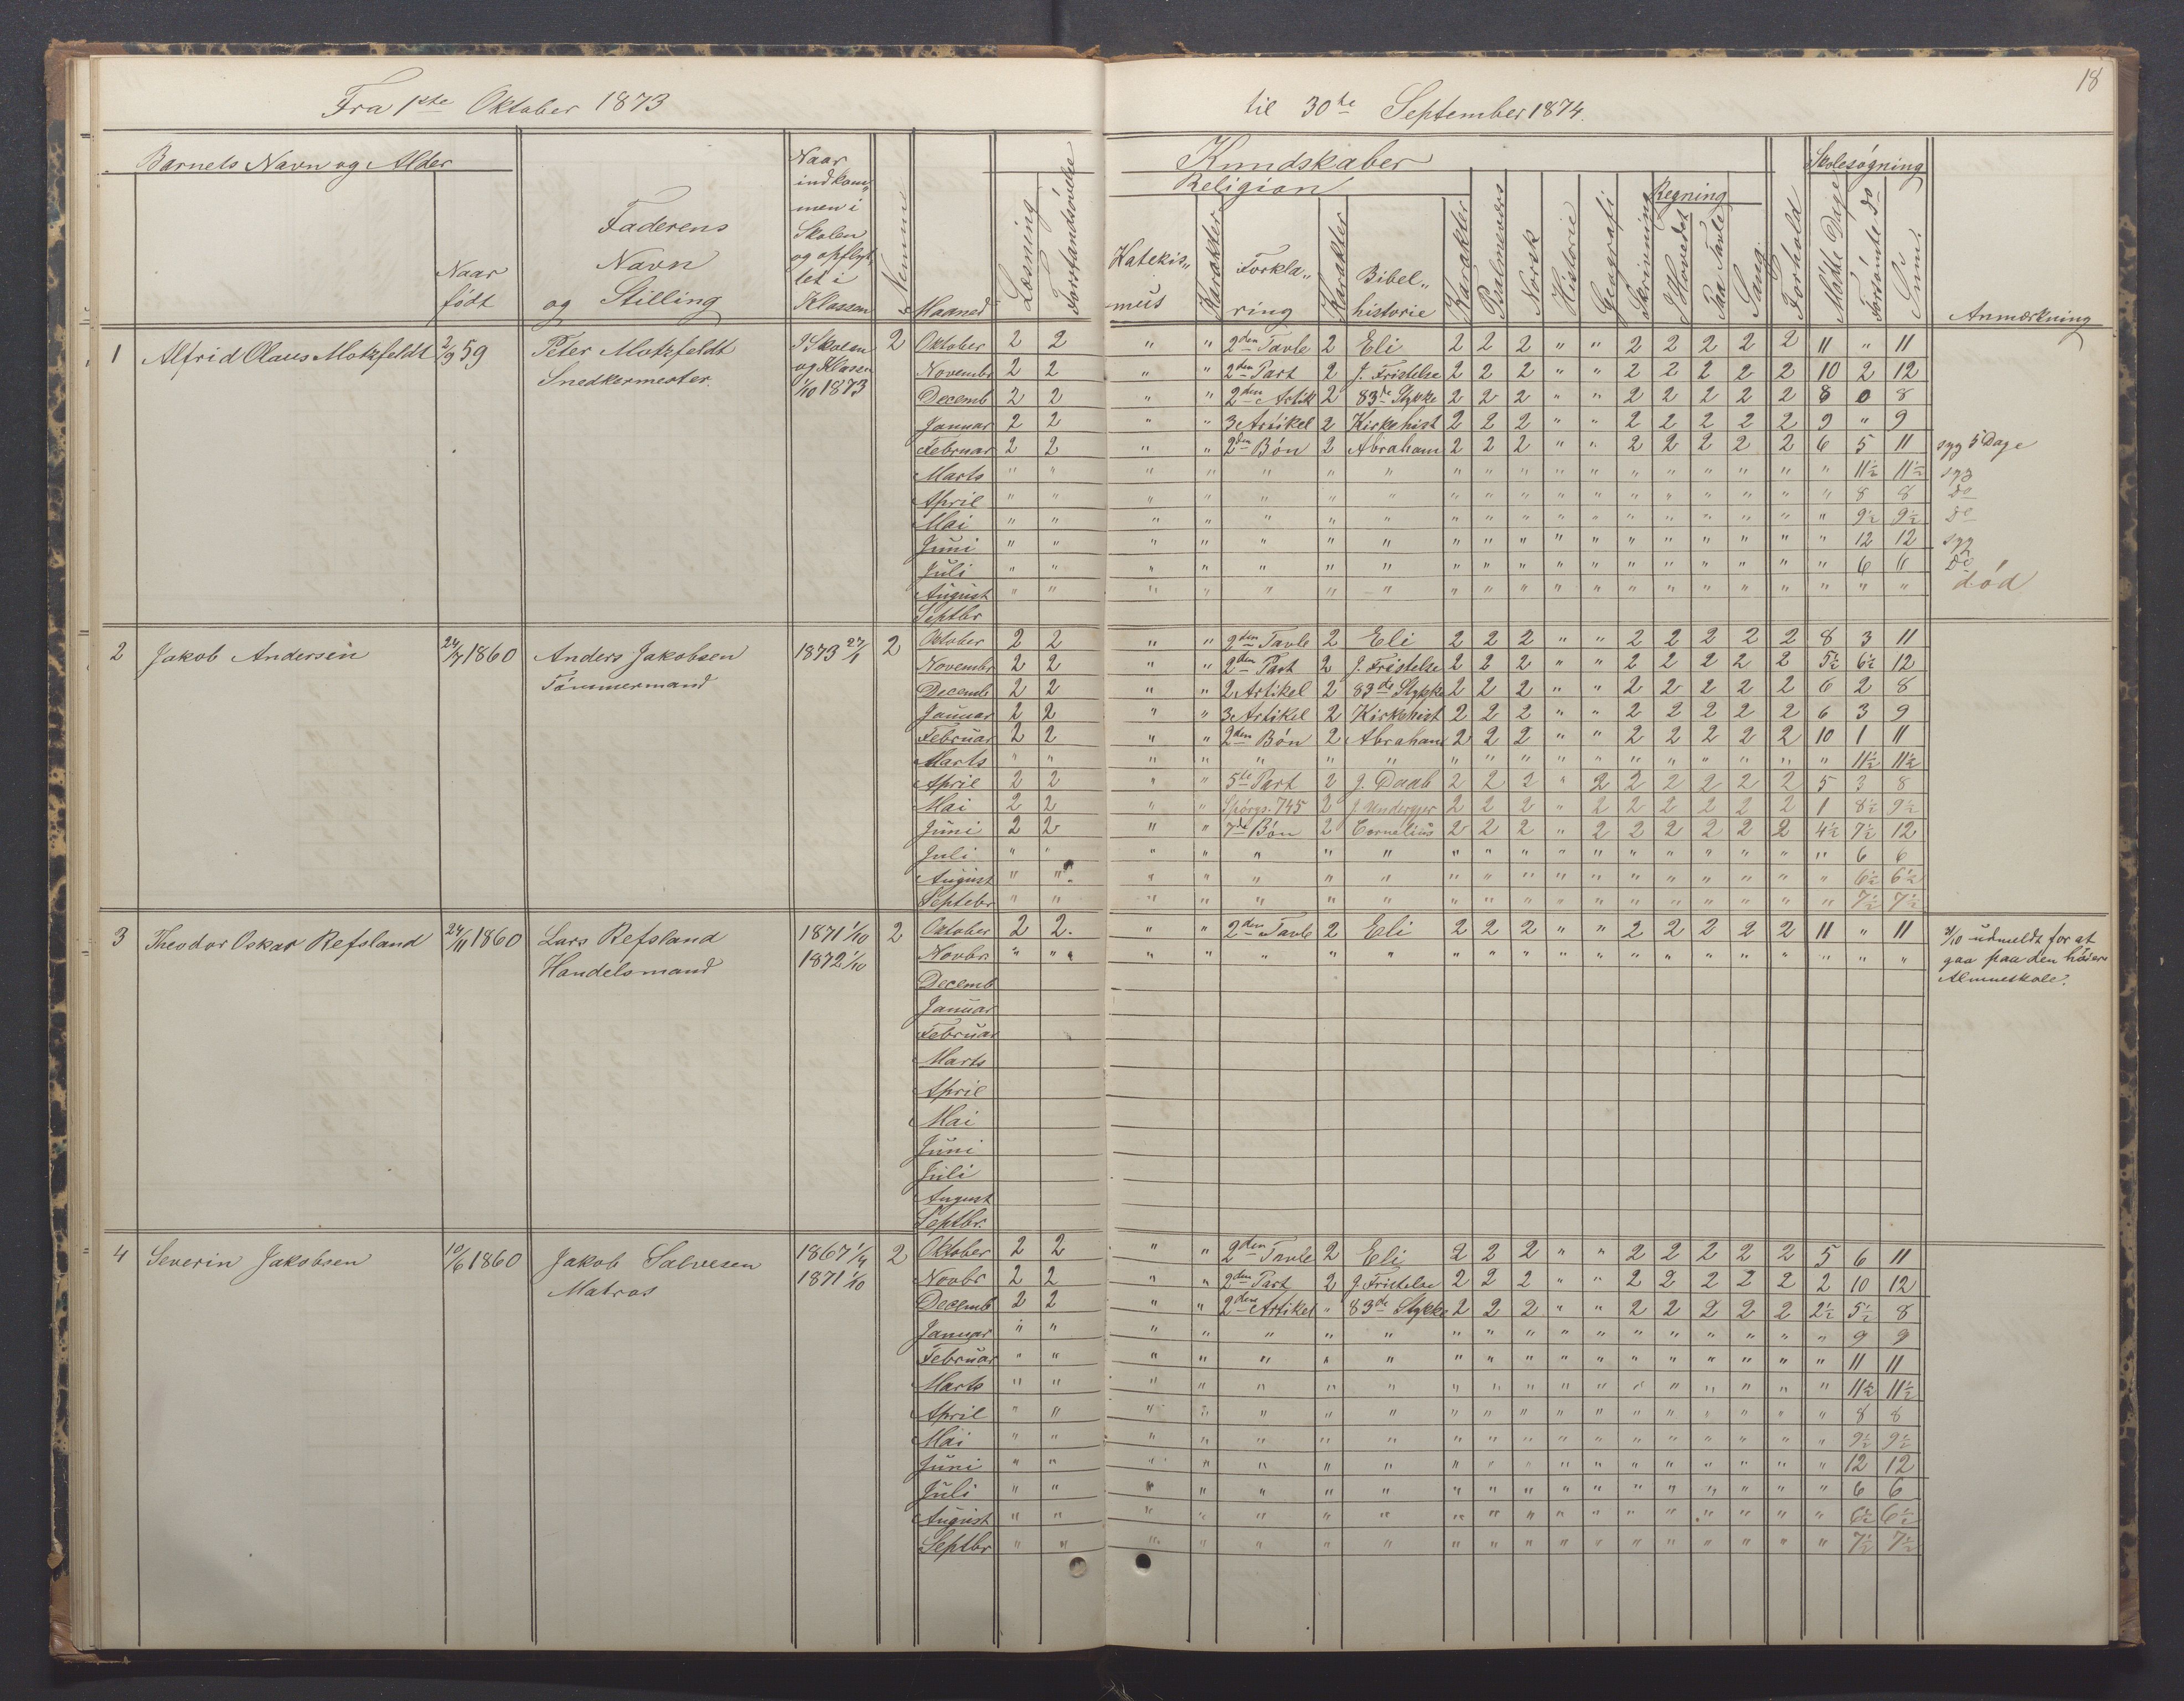 18
Fra 1ste Oktober 1873 til 30te September 1874.
Barnets Navn og Alder
Naar født
Faderens Navn og Stilling
Naar indkommen i Skolen og opflyttet i Klassen
Nemme
Maaned
Læsning
Forstandsøvelse
Kundskaber
Religion
Katekis„mus
Karakter
Forkla„ring
Karakter
Bibel„historie
Karakter
Psalmevers
Norsk
Historie
Geografi
Skrivning
Regning
I Hovedet
Paa Tavle
Sang
Forhold
Skolesøgning
Mødte Dage
Forsømte do
Sum.
Anmærkning
1 Alfrid Olaus Motzfeldt 2/9 59 Peter Motzfeldt Snedkermester. I Skolen og Klasen 1/10 1873 2
Oktober 2 2 " " 2den Tavle 2 Eli 2 2 2 " " 2 2 2 2 2 11 " 11
Novembr 2 2 " " 2den Part 2 J. Fristelse 2 2 2 " " 2 2 2 2 2 10 2 12
Decemb 2 2 " " 2den Artik 2 83de Stykke 2 2 2 " " 2 2 2 2 2 8 0 8
Januar 2 2 " " 3 Artikel 2 Kirkehist 2 2 2 " " 2 2 2 2 2 9 " 9
Februar 2 2 " " 2den Bøn 2 Abraham 2 2 2 " " 2 2 2 2 2 6 5 11 syg 5 Dage
Marts " " " " " " " " " " " " " " " " " " 11½ 11½ syg
April " " " " " " " " " " " " " " " " " " 8 8 do
Mai " " " " " " " " " " " " " " " " " " 9½ 9½ do
Juni " " " " " " " " " " " " " " " " " " 12 12 syg
Juli " " " " " " " " " " " " " " " " " " 6 6 do
August " " " " " " " " " " " " " " " " " " " " død
Septbr
2 Jakob Andersen 24/7 1860 Anders Jakobsen Tømmermand 1873 27/1 2
October 2 2 " " 2den Tavle 2 Eli 2 2 2 " " 2 2 2 2 2 8 3 11
Novembr 2 2 " " 2den Part 2 J. Fristelse 2 2 2 " " 2 2 2 2 2 5½ 6½ 12
Decemb 2 2 " " 2 Artikel 2 83de Stykke 2 2 2 " " 2 2 2 2 2 6 2 8
Januar 2 2 " " 3 Artikel 2 Kirkehist 2 2 2 " " 2 2 2 2 2 6 3 9
Februar 2 2 " " 2den Bøn 2 Abraham 2 2 2 " " 2 2 2 2 2 10 1 11
Marts " " " " " " " " " " " " " " " " " " 11½ 11½
April 2 2 " " 5te Part 2 J. Daab 2 2 2 " 2 2 2 2 2 2 5 3 8
Mai 2 2 " " Spørgs. 745 2 J. Undergjer 2 2 2 " 2 2 2 2 2 2 1 8½ 9½
Juni 2 2 " " 7de Bøn 2 Cornelius 2 2 2 " 2 2 2 2 2 2 4½ 7½ 12
Juli " " " " " " " " " " " " " " " " " " 6 6
August " " " " " " " " " " " " " " " " " " 6½ 6½
Septebr " " " " " " " " " " " " " " " " " " 7½ 7½
3 Theodor Oskar Refsland 24/11 1860 Lars Refsland Handelsmand 1871 1/10 1872 1/10 2
October 2 2. " " 2den Tavle 2 Eli 2 2 2 " " 2 2 2 2 2 11 " 11 31/10 udmeldt for at
Novbr. " " " " " " " " " " " " " " " " " " " " gaa paa den høiere
Decemb Almueskole.
Januar
Februar
Marts
April
Mai
Juni
Juli
August
Septbr.
4 Severin Jakobsen 10/6 1860 Jakob Salvesen Matros 1867 1/4 1871 1/10 2
Oktober 2 2 " " 2den Tavle 2 Eli 2 2 2 " " 2 2 2 2 2 5 6 11
Novbr 2 2 " " 2den Part 2 J. Fristelse 2 2 2 " " 2 2 2 2 2 2 10 12
Decemb 2 2 " " 2den Artikel " 83de Stykke 2 2 2 " " 2 2 2 2 2 2½ 5½ 8
Januar " " " " " " " " " " " " " " " " " " 9 9
Februar " " " " " " " " " " " " " " " " " " 11 11
Marts " " " " " " " " " " " " " " " " " " 11½ 11½
April " " " " " " " " " " " " " " " " " " 8 8
Mai " " " " " " " " " " " " " " " " " " 9½ 9½
Juni " " " " " " " " " " " " " " " " " " 12 12
Juli " " " " " " " " " " " " " " " " " " 6 6
August " " " " " " " " " " " " " " " " " " 6½ 6½
Septbr " " " " " " " " " " " " " " " " " " 7½ 7½